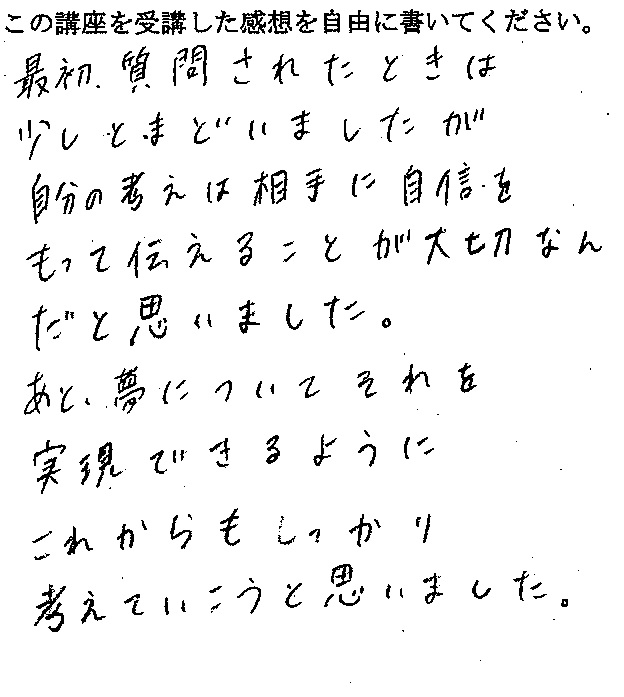 この講座を受講した感想を自由に書いてください。
最初、質問されたときは
少しとまどいましたが
自分の考えは相手に自信を
もって伝えることが大切なん
だと思いました。
あと、夢についてそれを
実現できるように
これからもしっかり
考えていこうと思いました。